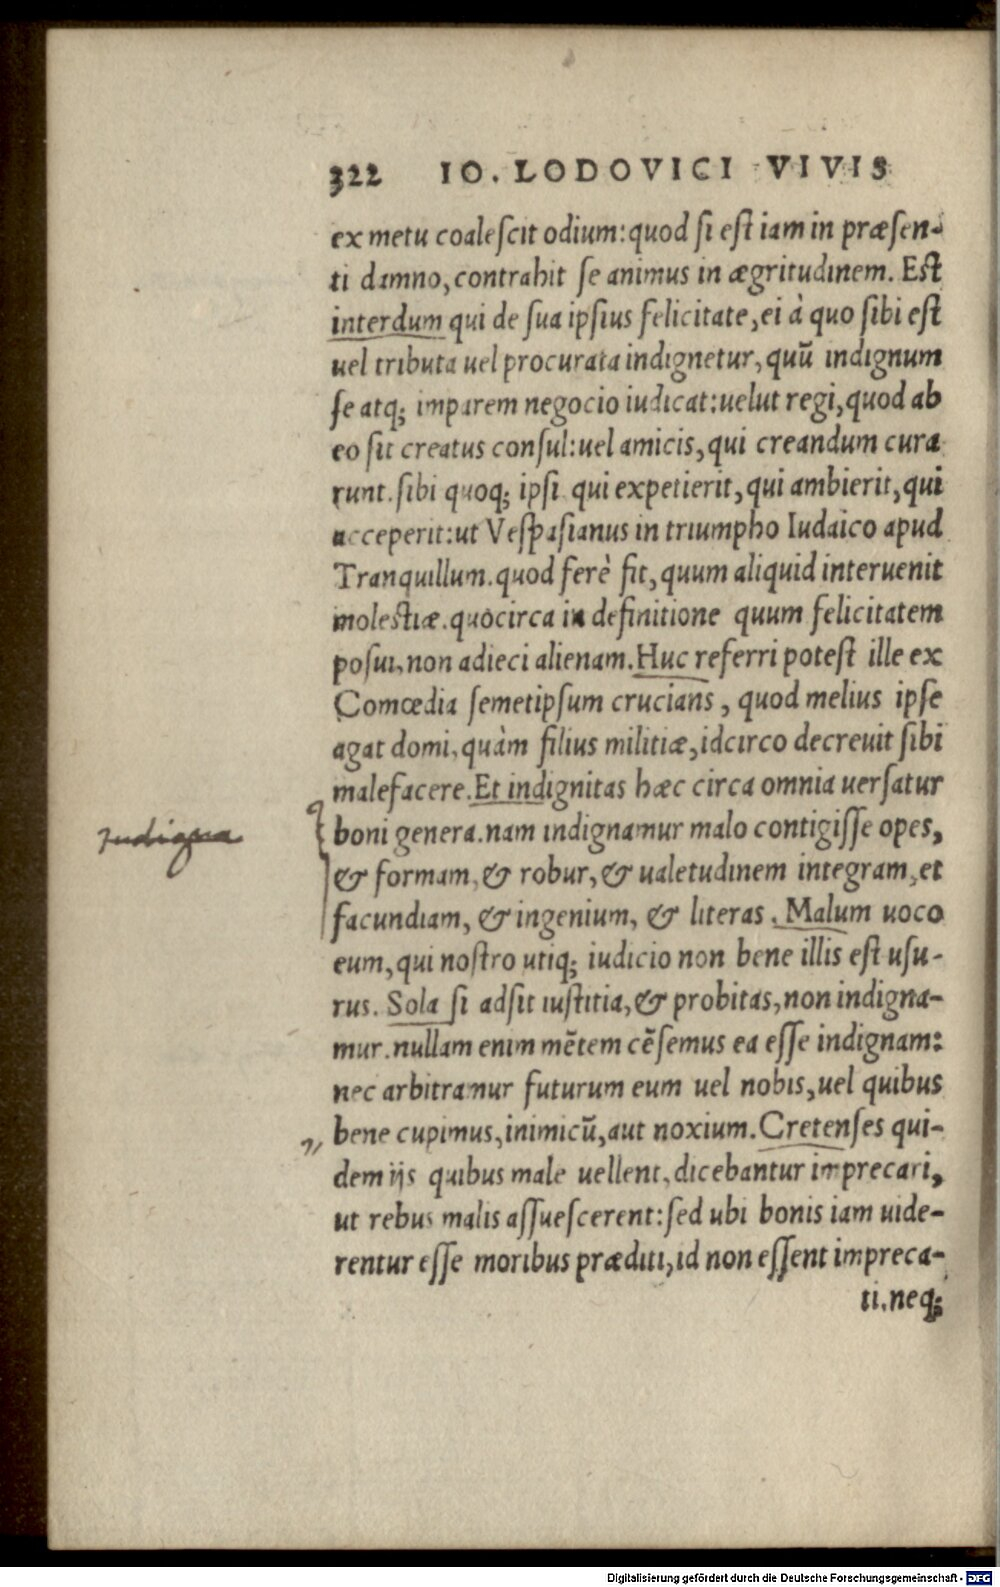 322 IO. LODOVICI VIVIS
ex metu coaleſcit odium: quod ſi eſt iam in præſen-
ti damno, contrahit ſe animus in ægritudinem. Eſt
interdum qui de ſua ipſius felicitate, ei à quo ſibi eſt
uel tributa uel procurata indignetur, quū indignum
ſe atq; imparem negocio iudicat: uelut regi, quod ab
eo ſit creatus conſul: uel amicis, qui creandum cura
runt. ſibi quoq; ipſi qui expetierit, qui ambierit, qui
acceperit: ut Veſpaſianus in triumpho Iudaico apud
Tranquillum. quod ferè fit, quum aliquid interuenit
moleſtiæ. quòcirca in definitione quum felicitatem
poſui, non adieci alienam. Huc referri poteſt ille ex
Comœdia ſemetipſum crucians, quod melius ipſe
agat domi, quàm filius militiæ, idcirco decreuit ſibi
malefacere. Et indignitas hæc circa omnia uerſatur
boni genera. nam indignamur malo contigiſſe opes,
& formam, & robur, & ualetudinem integram, et
facundiam, & ingenium, & literas. Malum uoco
eum, qui noſtro utiq; iudicio non bene illis eſt uſu-
rus. Sola ſi adſit iuſtitia, & probitas, non indigna-
mur. nullam enim mētem cēſemus ea eſſe indignam:
nec arbitramur futurum eum uel nobis, uel quibus
bene cupimus, inimicū, aut noxium. Cretenſes qui-
dem ijs quibus male uellent, dicebantur imprecari,
ut rebus malis aſſueſcerent: ſed ubi bonis iam uide-
rentur eſſe moribus præditi, id non eſſent impreca-
ti. neq;
Digitalisierung gefördert durch die Deutsche Forschungsgemeinschaft - DFG